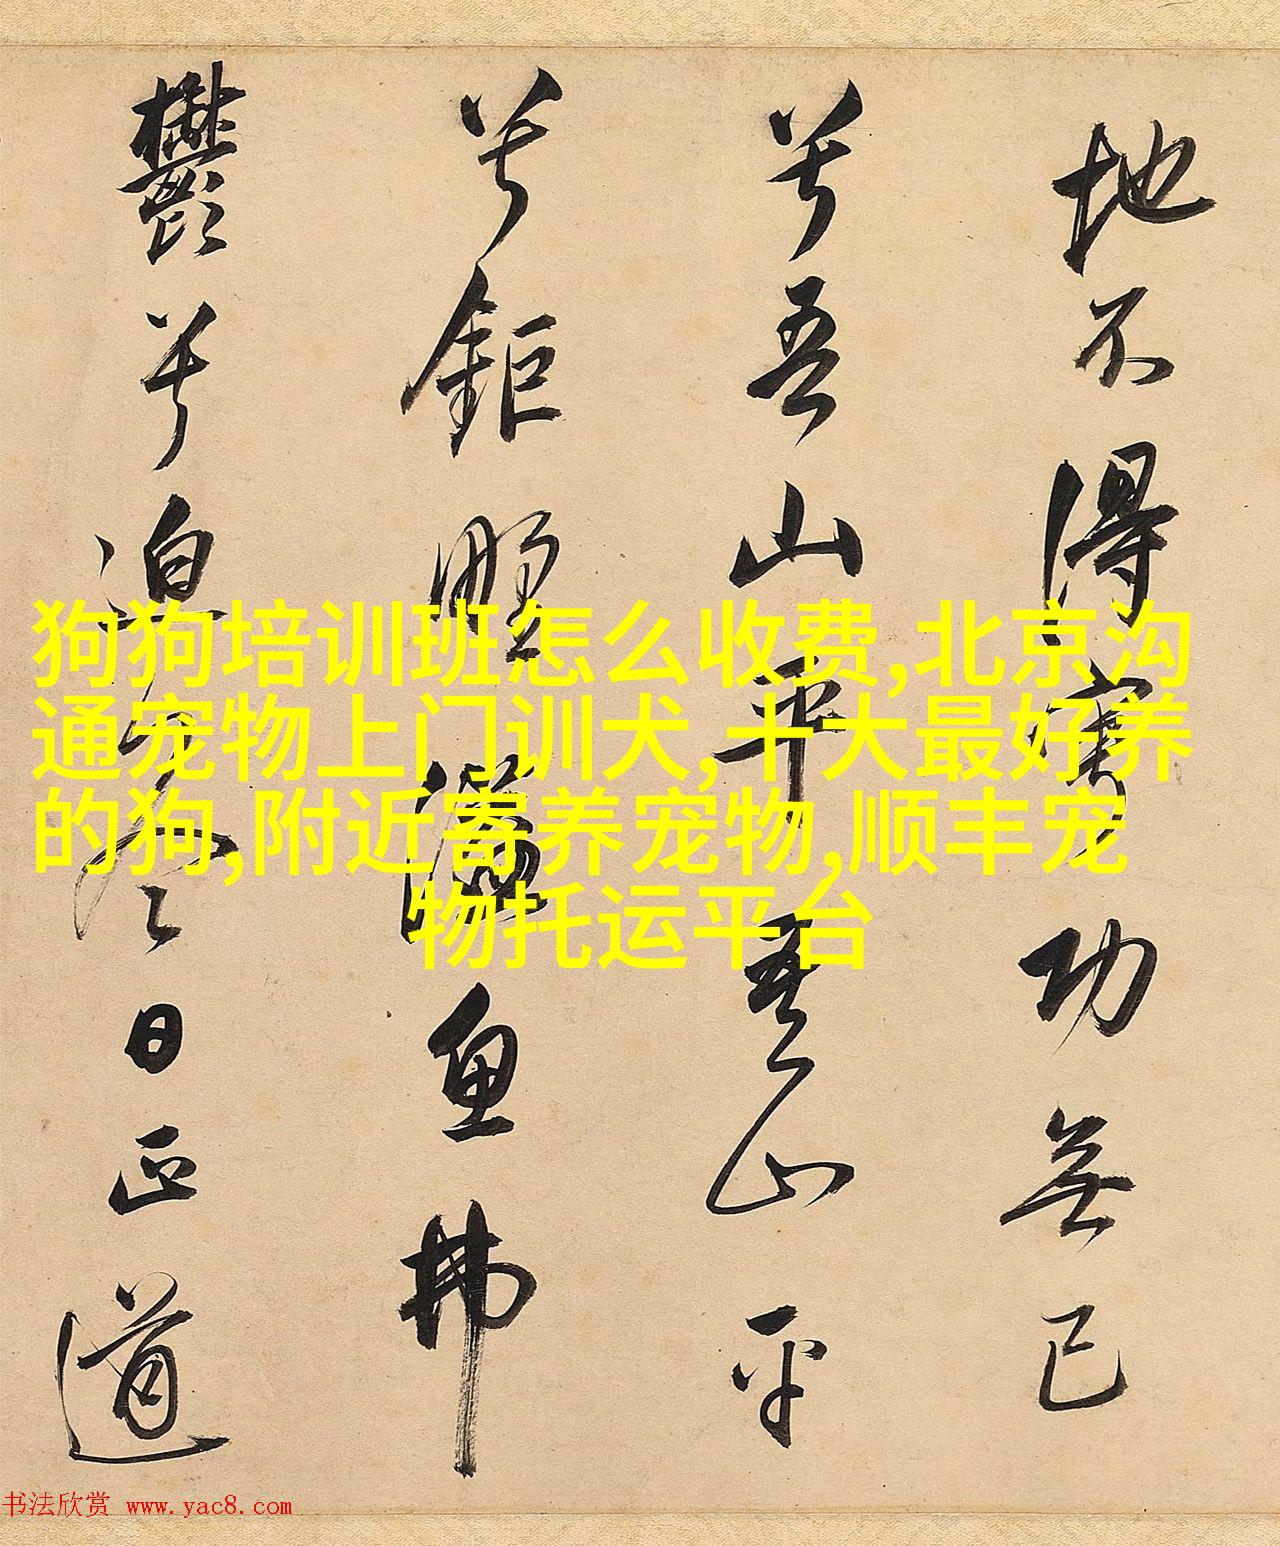 地不得寧功無已
兮吾山平吾山平
兮鉅野溢魚拂
鬱兮迫冬日正道
狗狗培训班怎么收费,北京沟
通宠物上门训犬,十大最好养
的狗,附近寄养宠物,顺丰宠
物托运平台
书法欣赏 www.yac8.com